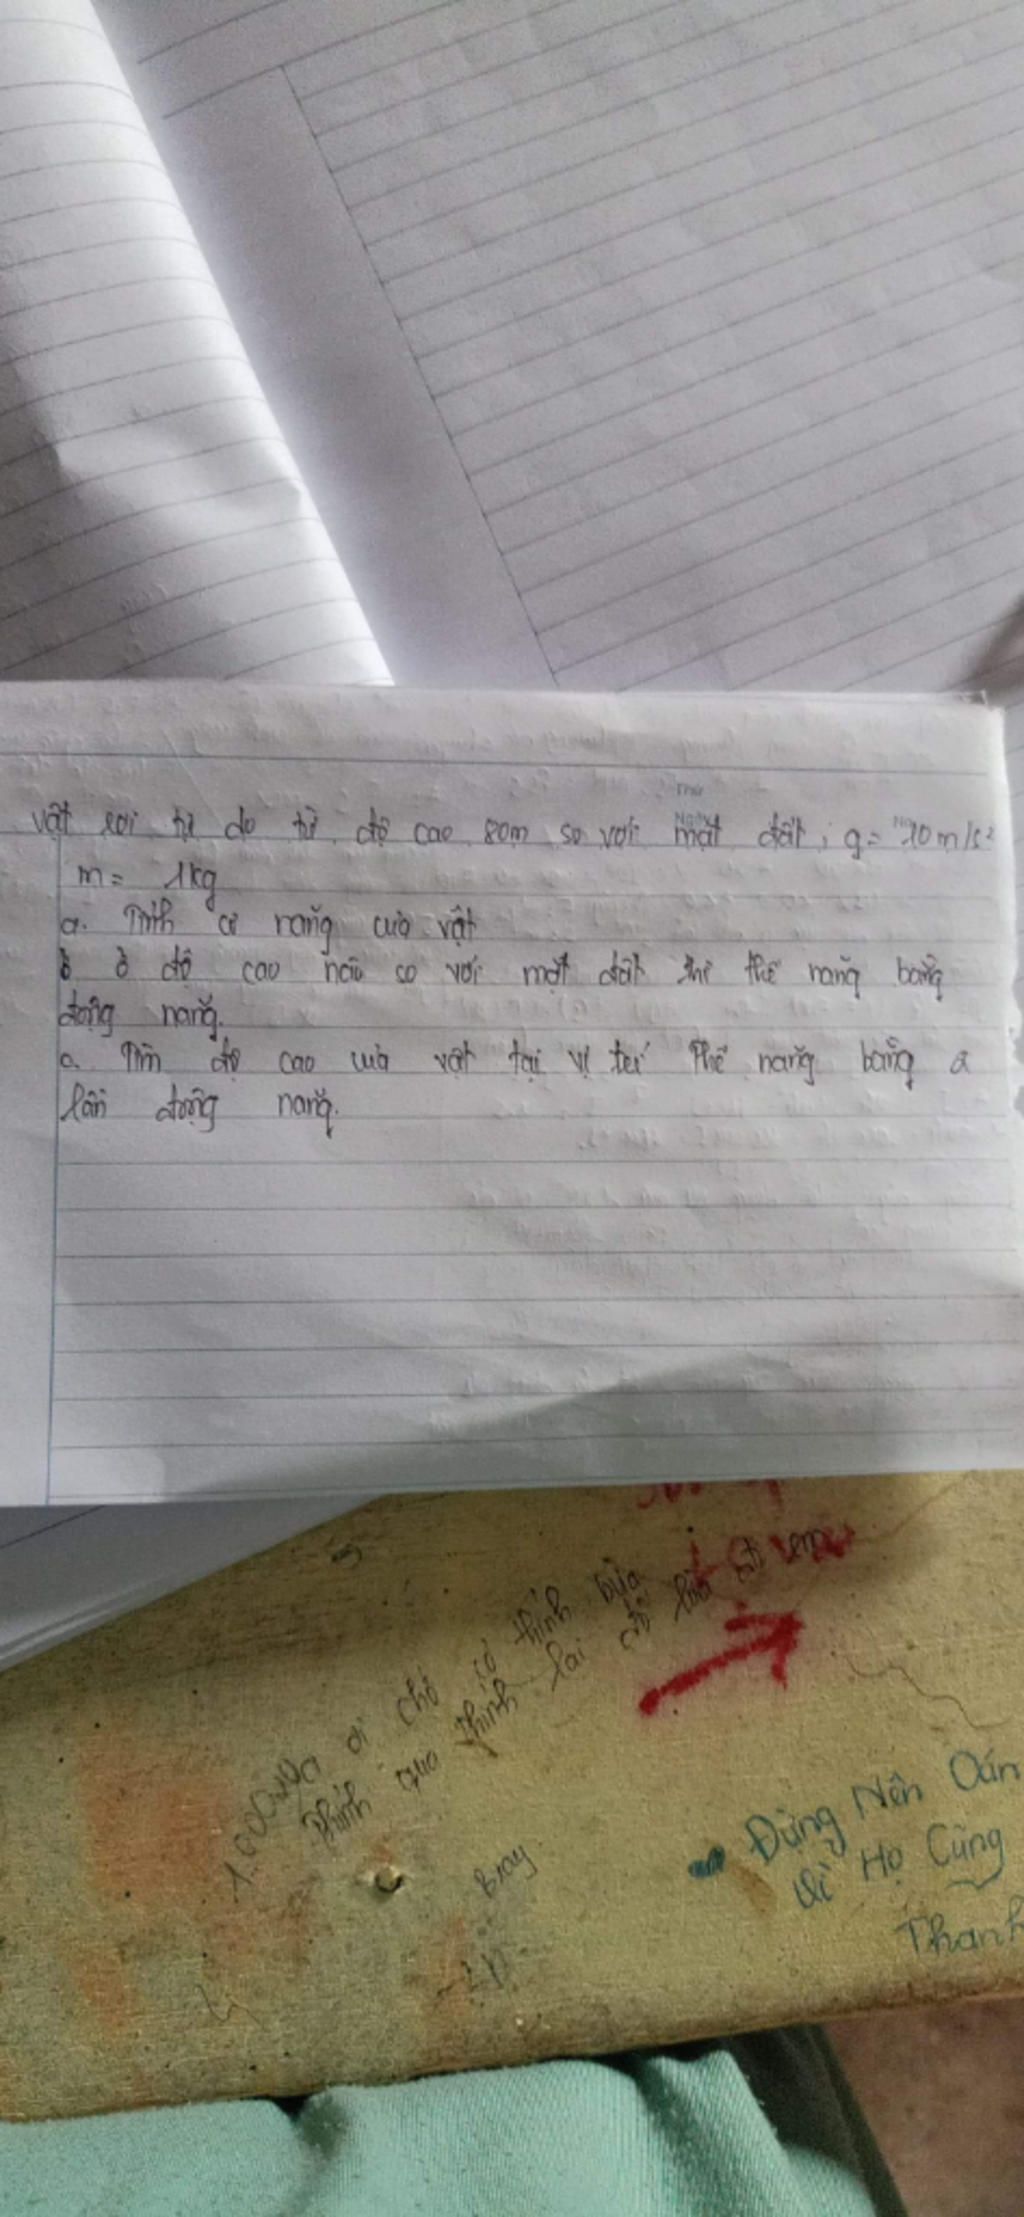 Thứ
Ngày
vật rơi tự do từ độ cao 80m so với mặt đất, g= 10m/s²
m= 1kg
a. Tính cơ năng của vật
b ở độ cao nào so với mặt đất thì thế năng bằng
động năng.
c. Tìm độ cao của vật tại vị trí thế năng bằng 2
lần động năng.
ơi chỗ có thính bựa
thính qua thính lại cỡ
Bray
Đừng Nên Oán
Vì Họ Cũng
Thanh